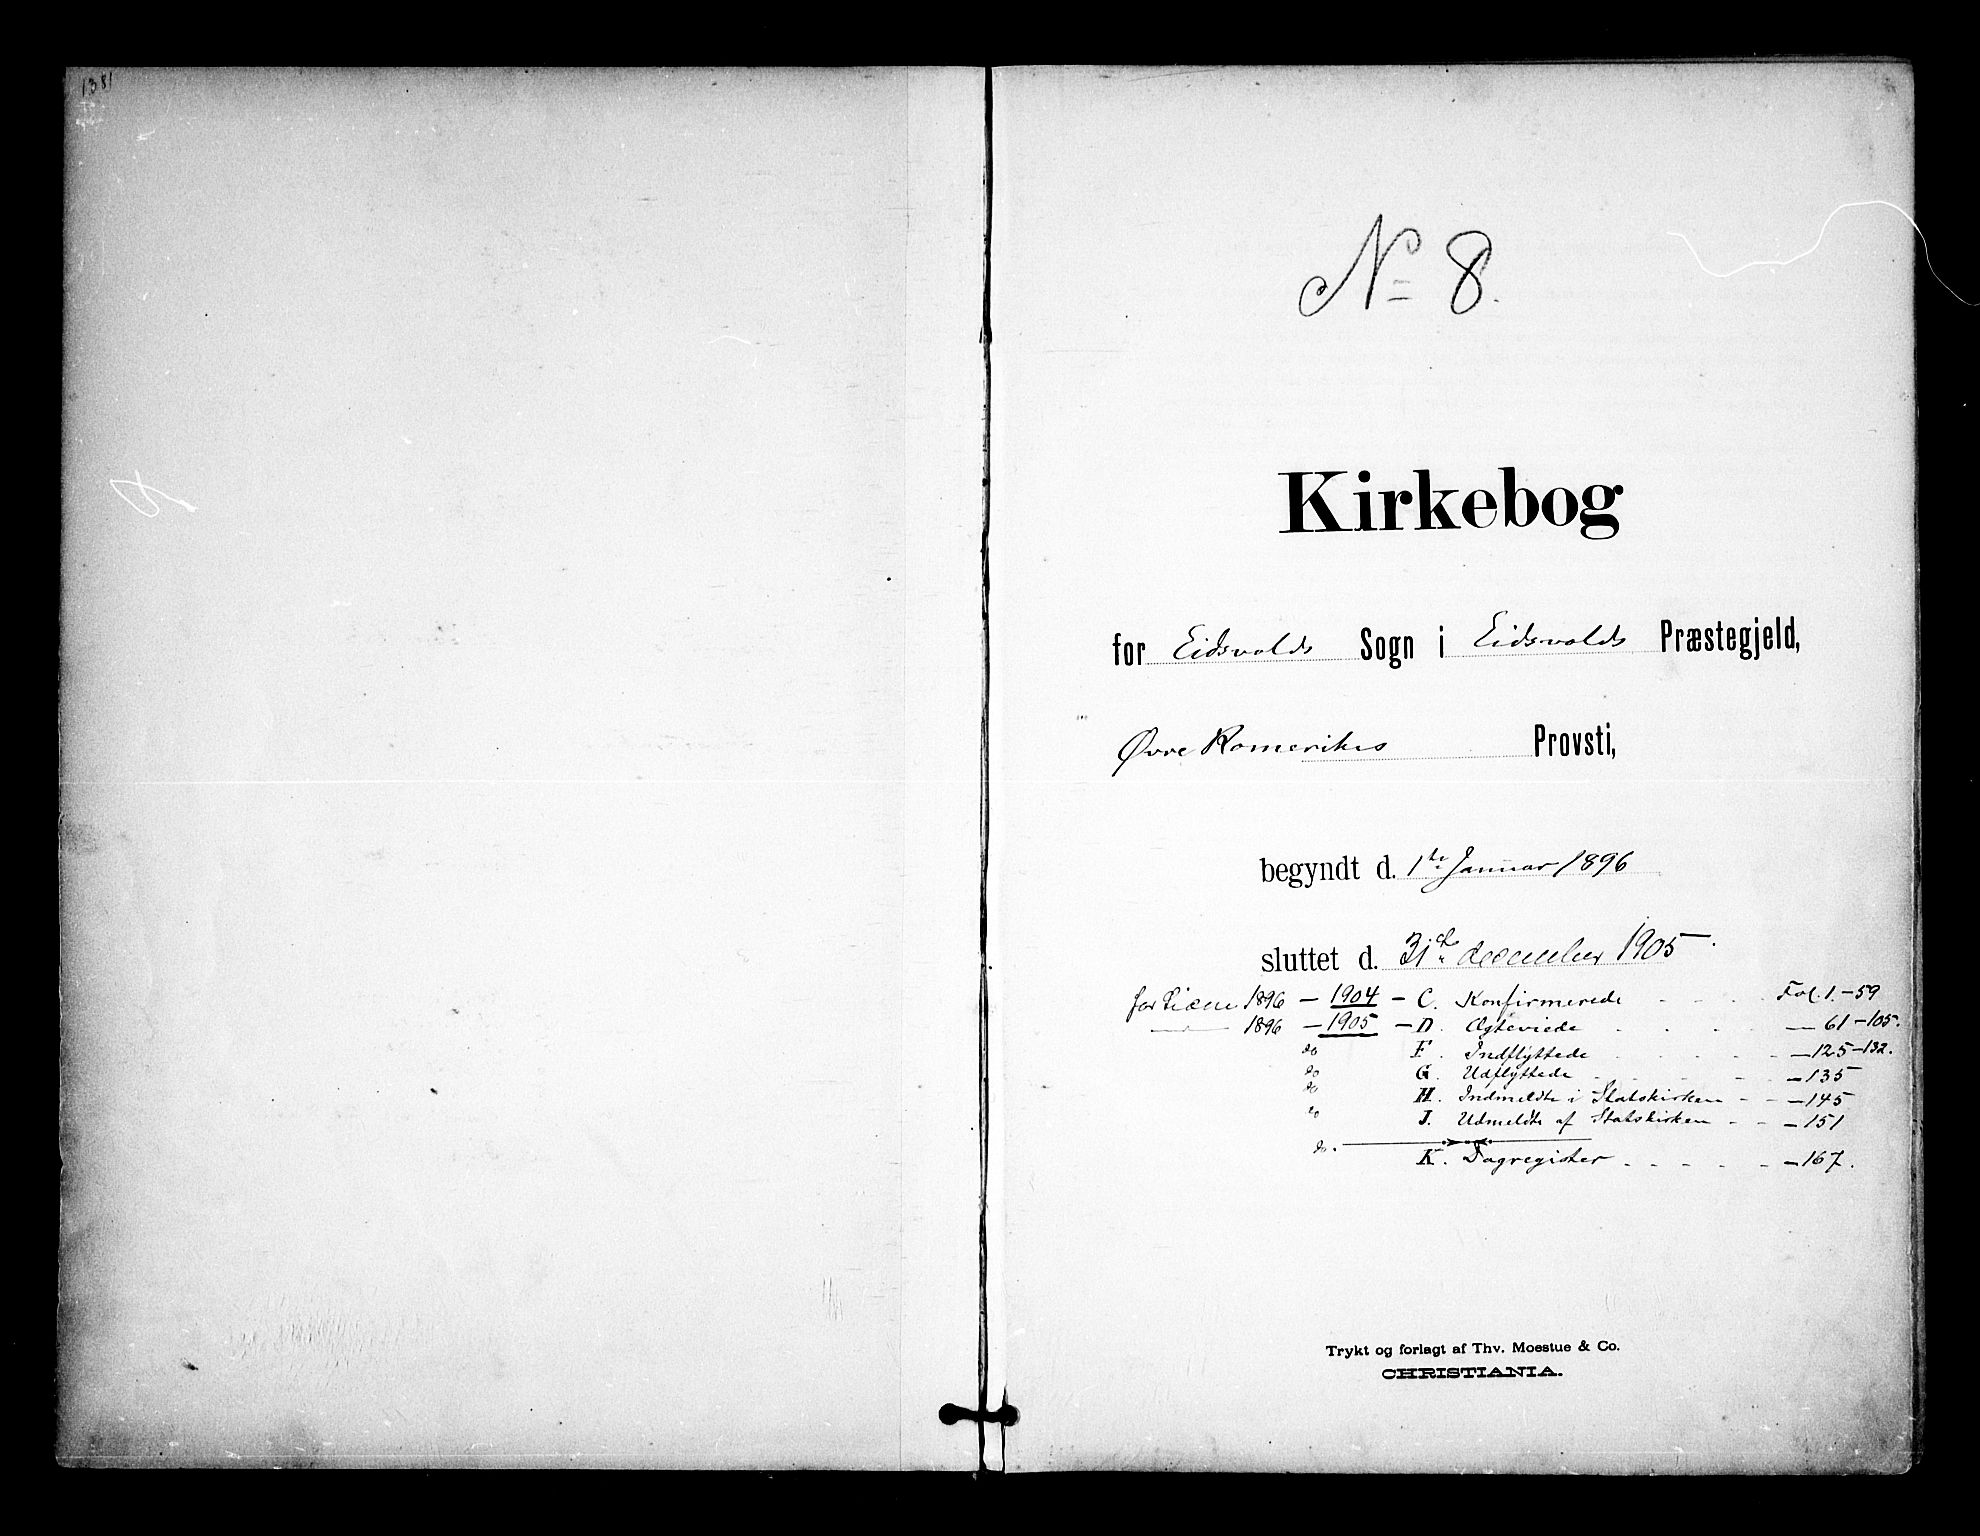 1381
No 8.
Kirkebog
for Eidsvolds Sogn i Eidsvolds Præstegjeld,
Øvre Romerikes Provsti,
begyndt d. 1ste Januar 1896
sluttet d. 31te december 1905.
for Tiden 1896 – 1904 – C. Konfirmerede - - - Fol. 1. – 59
— 1896 – 1905 – D. Ægteviede . . . . — 61 – 105.
do F. Indflyttede . . . . - — 125 – 132.
do G. Udflyttede . - - - - — 135
do H. Indmeldte i Statskirken - - — 145
do J. Udmeldte af Statskirken - - — 151
do. K. Dagregister . - - - - — 167.
Trykt og forlagt af Thv. Moestue & Co.
CHRISTIANIA.